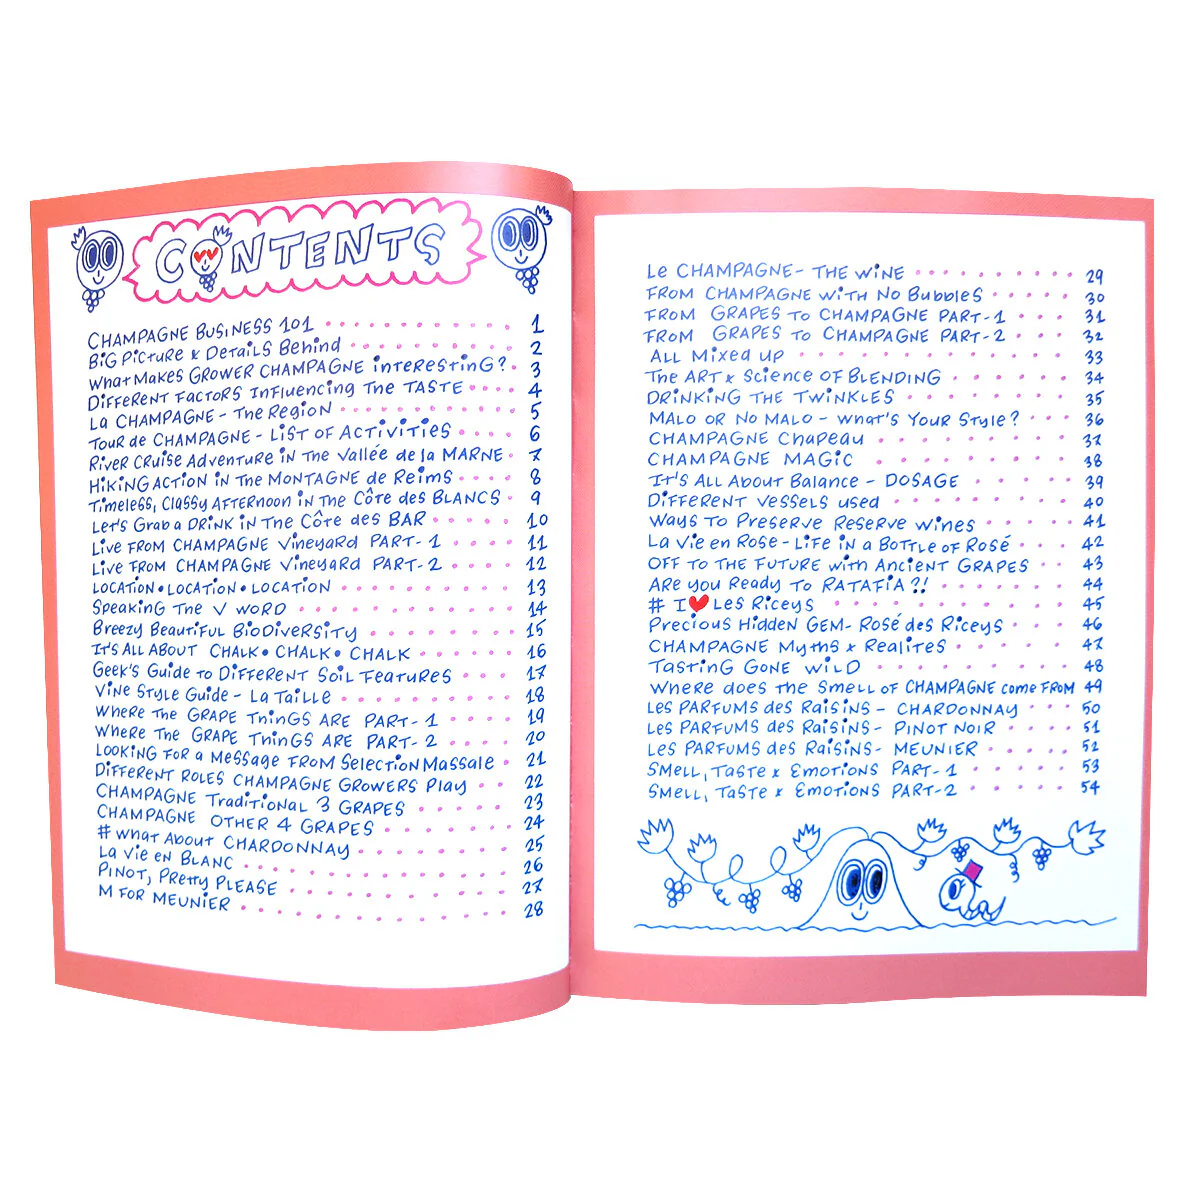 CONTENTS
CHAMPAGNE BUSINESS 101 1
BiG PicTuRe & DeTaiLS BeHinD 2
WhaT MaKeS GROWER CHAMPAGNE inTeReSTinG? 3
DiFFeReNT FacToRS InFLuenciNg The TASTE 4
La CHAMPAGNE - The ReGiON 5
TouR de CHAMPAGNE - LiST OF AcTiViTieS 6
RiVeR CRuiSe AdvenTuRe iN The Vallée de la MARNE 7
HiKiNG ACTiON iN The MONTAGNE de ReimS 8
TimeleSS, ClaSSy AFTeRNooN iN The Côte des BLANCS 9
LeT'S GRab a DRiNK iN The Côte des BAR 10
Live FROM CHAMPAGNE VineyaRd PART-1 11
Live FROM CHAMPAGNE VineyaRd PART-2 12
LOCATiON • LOCATiON • LOCATiON 13
SPeaKiNg The V WORD 14
BReezy BeauTiFuL BioDiveRSiTy 15
IT'S ALL ABOUT CHALK • CHALK • CHALK 16
GeeK'S Guide to DiFFeReNT SoiL FeaTuReS 17
ViNe STyLe Guide - LA TaiLLe 18
WheRe The GRAPE ThiNGS ARE PART-1 19
WheRe The GRAPE ThiNGS ARE PART-2 20
LOOKiNG FOR a MeSSage FROM SeLecTioN MaSSale 21
DiFFeReNT ROLeS CHAMPAGNE GROWeRS Play 22
CHAMPAGNE TRadiTioNaL 3 GRAPES 23
CHAMPAGNE OTHeR 4 GRAPES 24
# WhaT AbouT CHARDONNAY 25
La Vie eN BLANC 26
PiNOT, PReTTy PLEASE 27
M FOR MEUNiER 28
Le CHAMPAGNE - THe WiNE 29
FROM CHAMPAGNE WiTH No BubbleS 30
FROM GRAPES To CHAMPAGNE PART-1 31
FROM GRAPES To CHAMPAGNE PART-2 32
ALL Mixed up 33
The ART & Science OF BLENDiNG 34
DRiNKiNG THE TWiNKLES 35
MALO OR NO MALO - WhaT'S YouR STyle? 36
CHAMPAGNE Chapeau 37
CHAMPAGNE MAGiC 38
IT'S ALL AbouT Balance - DOSAGE 39
DiFFeReNT VeSSeLS used 40
WayS To PReSeRve ReSeRve WiNeS 41
La Vie en RoSe - LiFe iN a BoTTLe oF RoSé 42
OFF TO THE FUTURE WiTH ANcieNT GRAPES 43
ARe you Ready To RATAFiA?! 44
# I ❤ LeS RiceyS 45
PRecious HiddeN GEM - RoSé des RiceyS 46
CHAMPAGNE MyThS & RealiTeS 47
TaSTiNG GONe WiLD 48
WHeRe does The Smell oF CHAMPAGNE come FROM 49
LeS PARFUMS des RaiSiNS - CHARDONNAY 50
LeS PARFUMS des RaiSiNS - PiNOT NOiR 51
LeS PARFUMS des RaiSiNS - MEUNiER 52
SmeLL, TaSTe & EmoTioNS PART-1 53
SmeLL, TaSTe & EmoTioNS PART-2 54